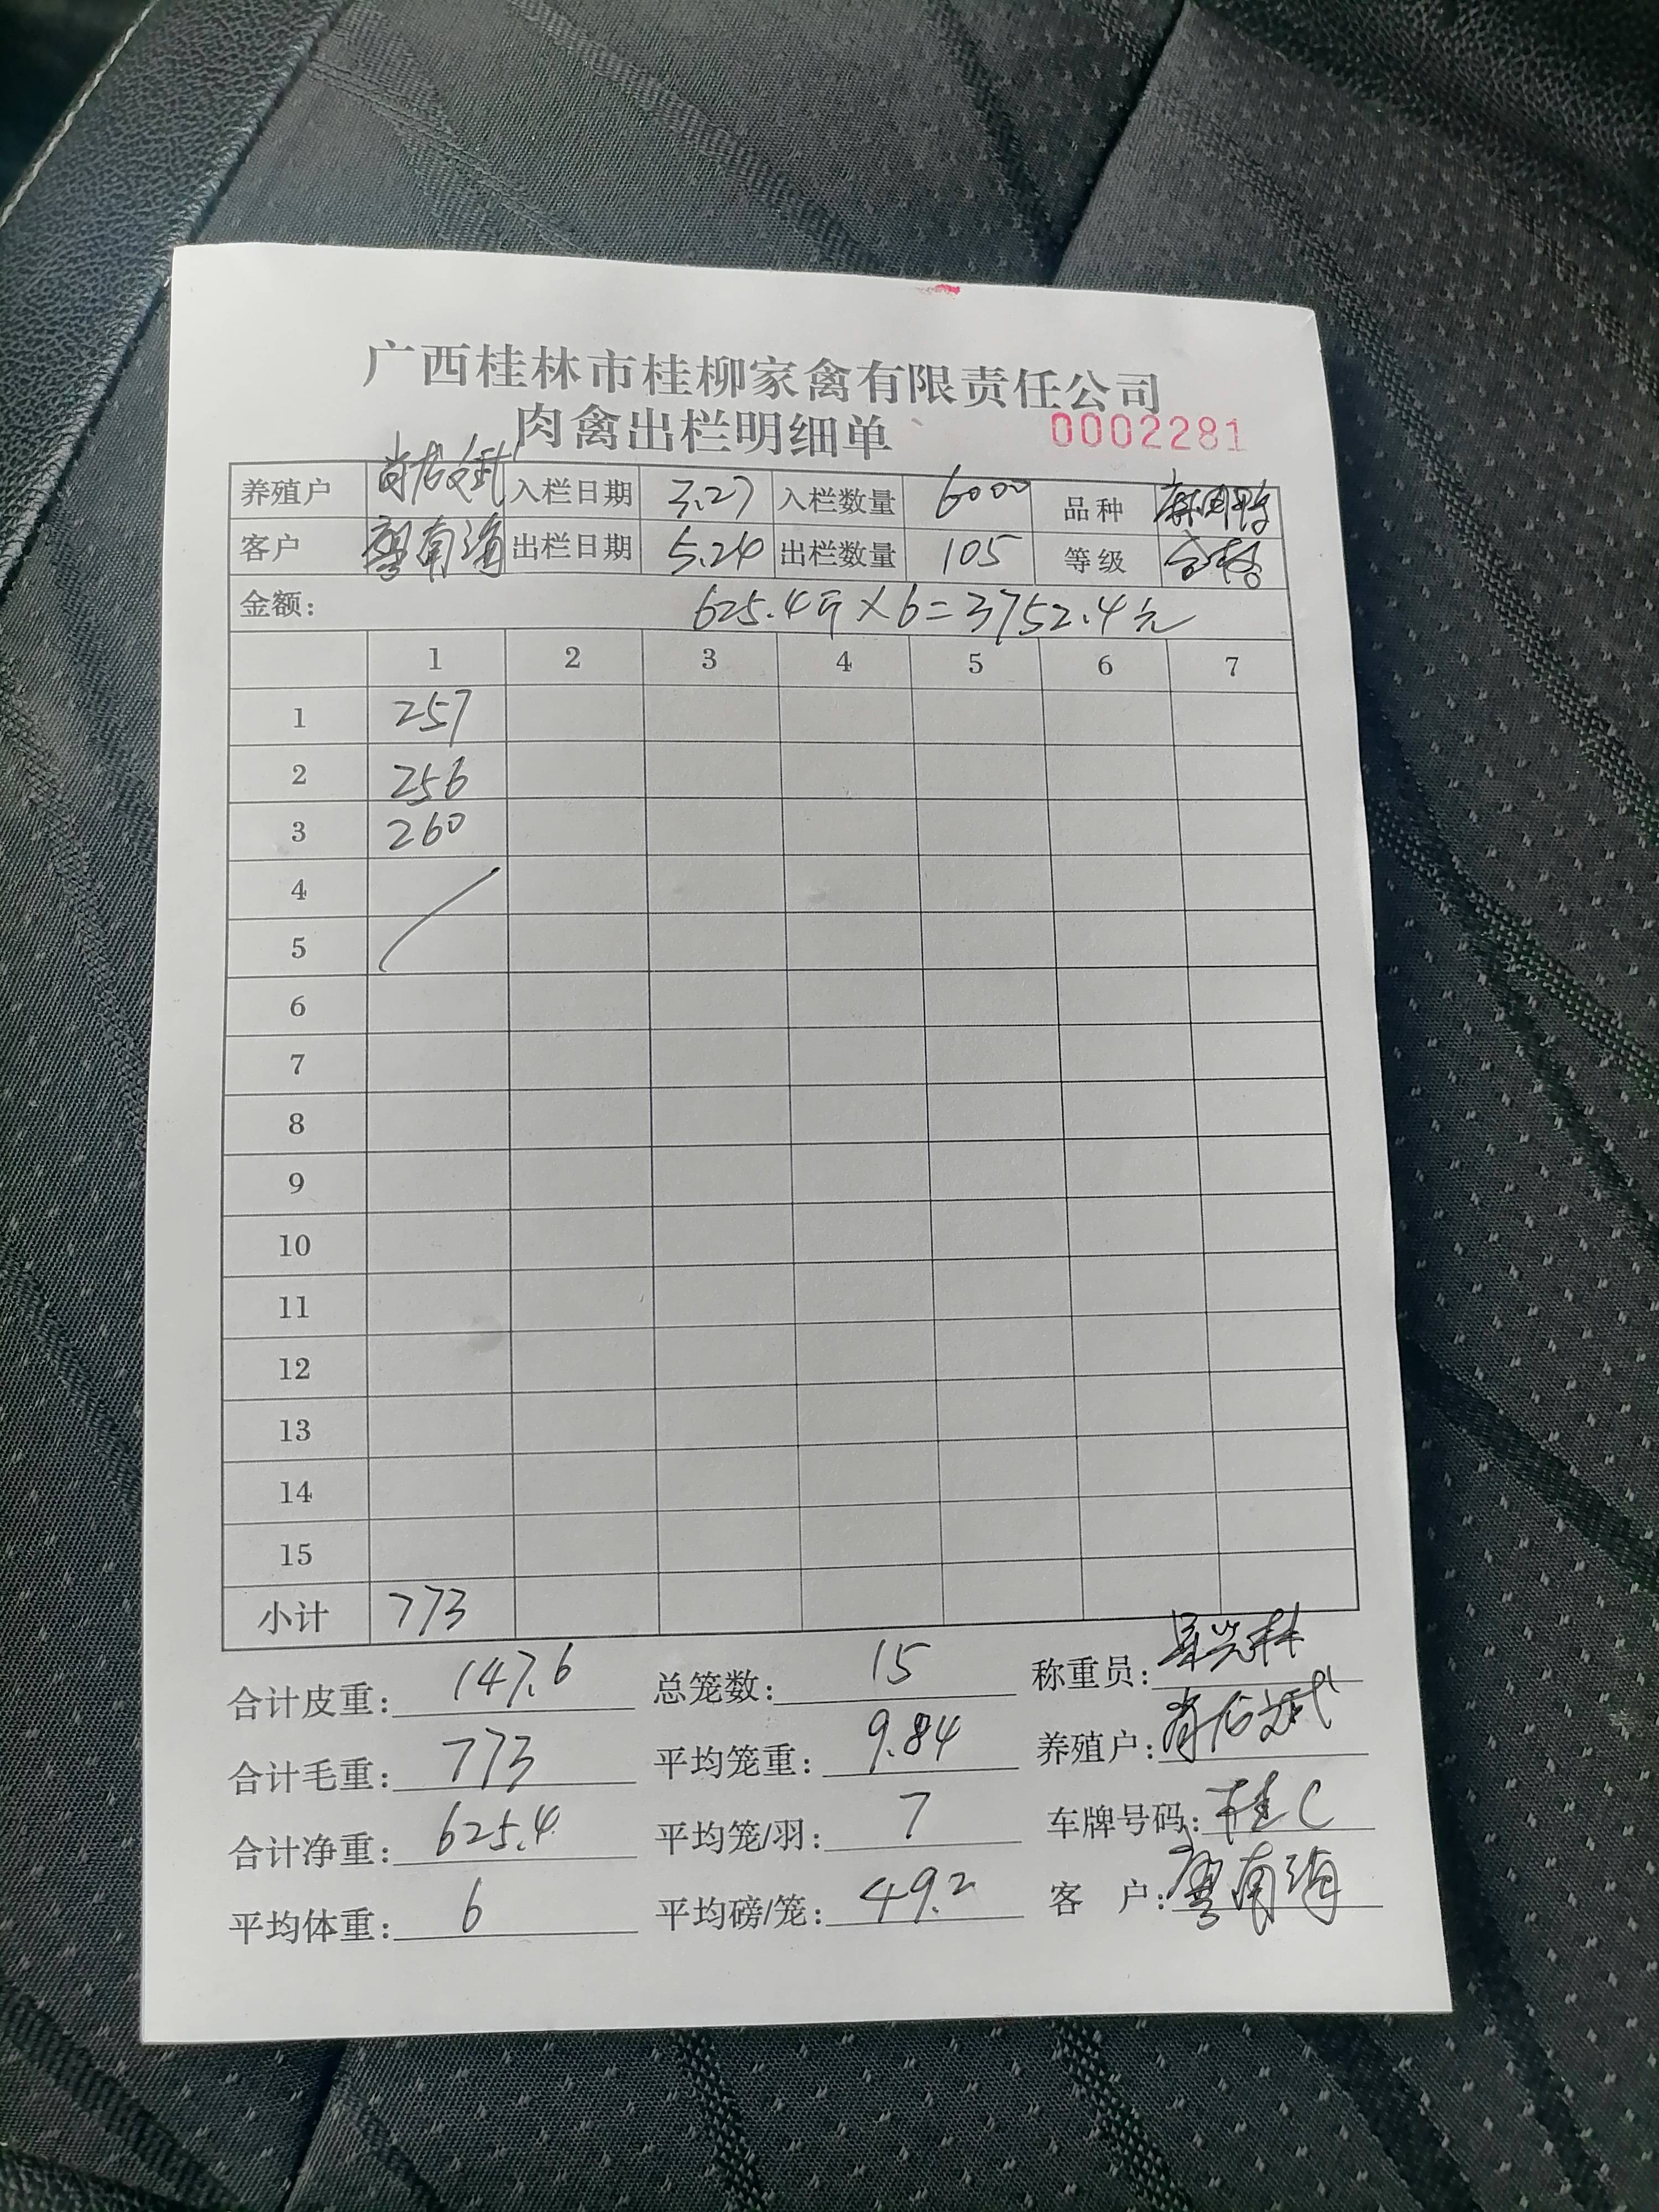 广西桂林市桂柳家禽有限责任公司
肉禽出栏明细单 0002281
养殖户 入栏日期 3.27 入栏数量 6000 品种 麻肉鸭
客户 廖南海 出栏日期 5.24 出栏数量 105 等级 合格
金额: 625.4斤×6=3752.4元
1 2 3 4 5 6 7
1 257
2 256
3 260
4
5
6
7
8
9
10
11
12
13
14
15
小计 773
合计皮重: 147.6 总笼数: 15 称重员:
合计毛重: 773 平均笼重: 9.84 养殖户:
合计净重: 625.4 平均笼/羽: 7 车牌号码: 桂C
平均体重: 6 平均磅/笼: 49.2 客户: 廖南海